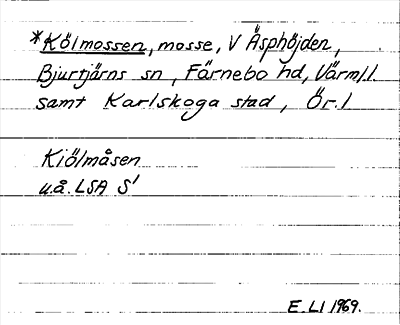 *Kölmossen, mosse, V Äsphöjden,
Bjurtjärns sn, Färnebo hd, Värml.l.
samt Karlskoga stad, Ör.l
Kiölmåsen
u.å. LSA S'
E. LI 1969.